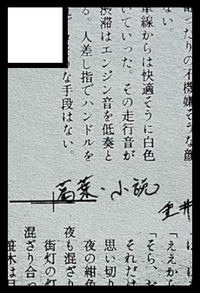 ったりの不機嫌そうな顔
ない。
車線からは快適そうに白色
ていった。その走行音が
渋滞はエンジン音を低奏と
る。人差し指でハンドルを
な手段はない。
言葉・小説
「ええから
「そら、
それだけ
思い切り
夜の紺色
夜も混ざ
街灯の灯
混ざり合
笹木は